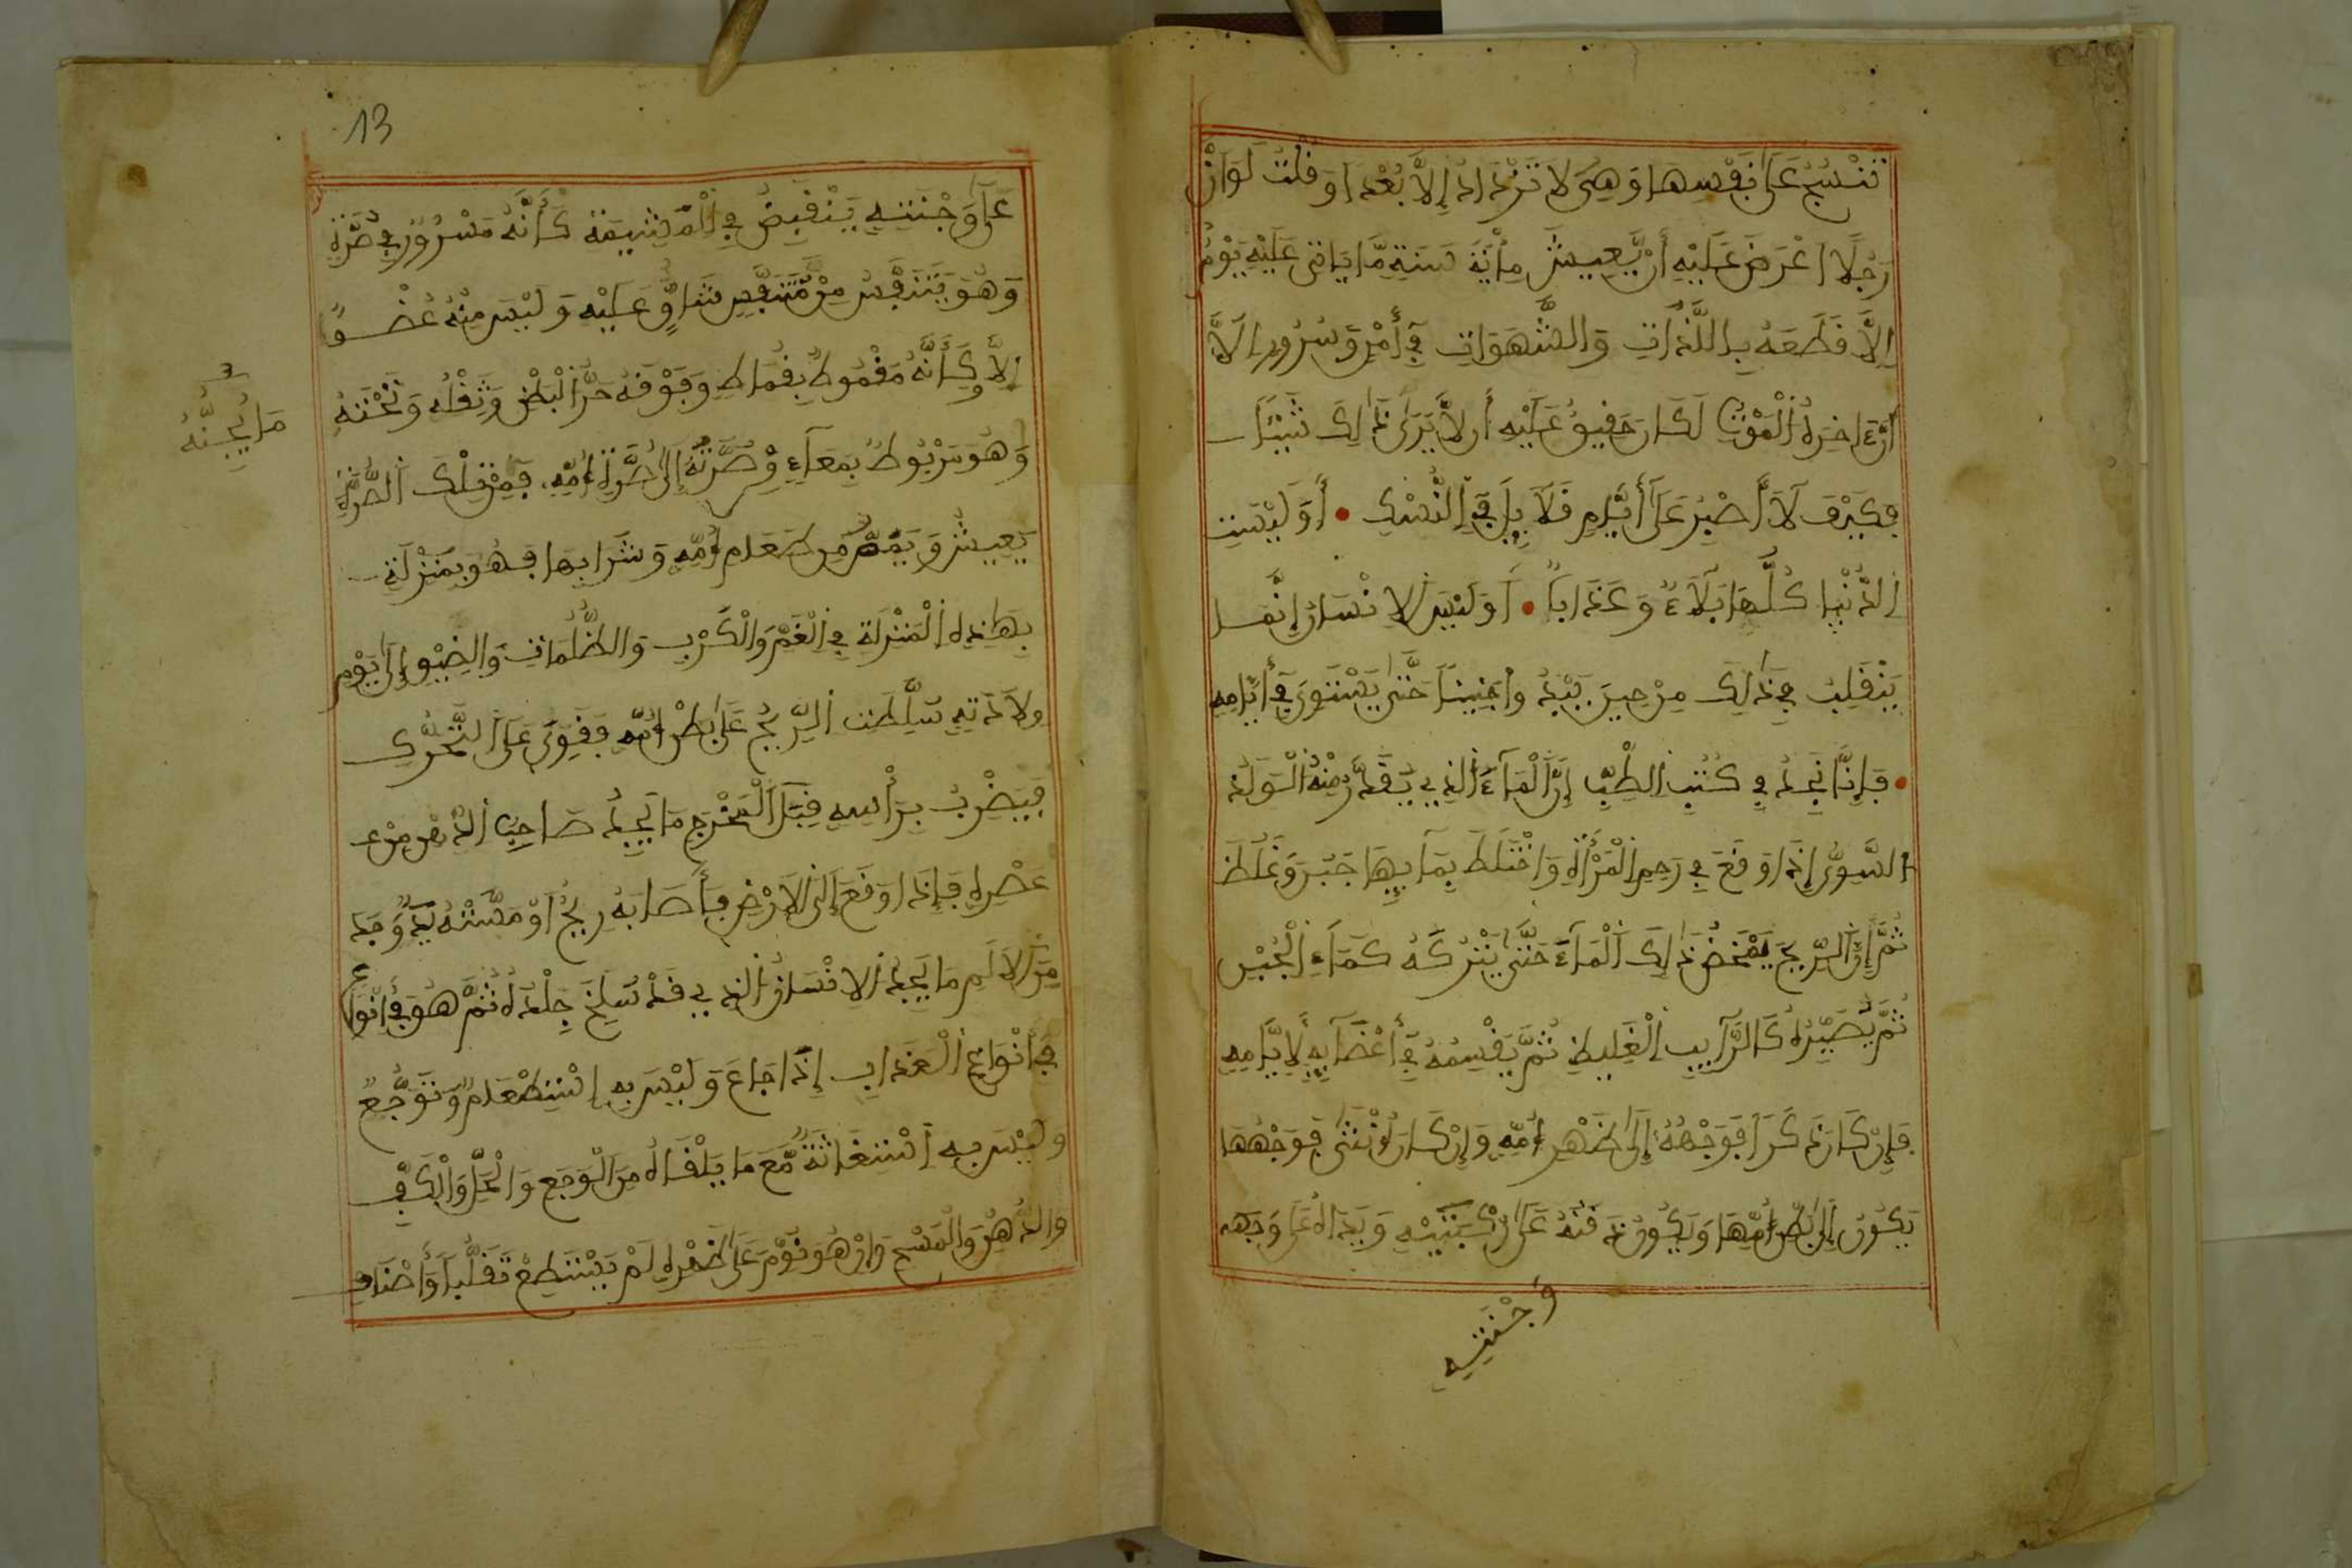 تَنْسُجُ عَلَى نَفْسِهَا وَهِيَ لَا تَزْدَادُ إِلَّا بُعْدًا وَقُلْتُ لَوَ انَّ
رَجُلًا اعْرَضَ عَلَيْهِ أَنْ يَّعِيشَ مِائَةَ سَنَةٍ مَّا يَاتِى عَلَيْهِ يَوْمٌ
اِلَّا قَطَعَهُ بِاللَّذَّاتِ وَالشَّهَوَاتِ فِي أَمْنٍ وَسُرُورٍ اِلَّا
أَنَّ ءَاخِرَهُ الْمَوْتُ لَكَانَ حَقِيقٌ عَلَيْهِ أَن لَّا يَرَى ذَالِكَ شَيْئًا
فَكَيْفَ لَا أَصْبِرُ عَلَى أَيَّامٍ قَلَائِلَ فِي النُّسْكِ • أَوَ لَيْسَتِ
الدُّنْيَا كُلُّهَا بَلَاءٌ وَعَذَابًا • أَوَ لَيْسَ الِانْسَانُ إِنَّمَا
يَنْقَلِبُ فِي ذَالِكَ مِنْ حِينَ يَبْدُ وا جَنِينًا حَتَّى يَسْتَوِيَ فِي أَيَّامِهِ
• فَإِنَّا نَجِدُ فِي كُتُبِ الطِّبِّ إِنَّ الْمَاءَ الَّذِي يُقَدَّرُ مِنْهُ الْوَلَدُ
السَّوِيُّ إِذَا وَقَعَ فِي رَحِمِ الْمَرْأَةِ وَاخْتَلَطَ بِمَا بِيهَا خَثُرَ وَغَلُظَ
ثُمَّ إِنَّ الرِّيحَ يَمْخَضُ ذَالِكَ الْمَاءَ حَتَّى يَتْرُكَهُ كَمَاءِ الْجُبْنِ
ثُمَّ يُصَيِّرُهُ كَالرَّائِبِ الْغَلِيظِ ثُمَّ يَقْسِمُهُ فِي أَعْضَائِهِ لِأَيَّامِهِ
فَإِنْ كَانَ ذَكَرًا فَوَجْهُهُ إِلَى ظَهْرِ أُمِّهِ وَإِنْ كَانَ أُنْثَى فَوَجْهُهَا
يَكُونُ إِلَى بَطْنِ أُمِّهَا وَيَكُونُ ذَقْنُهُ عَلَى رُكْبَتَيْهِ وَيَدَاهُ عَلَى وَجْهِهِ
وَجْنَتِهِ
13
عَلَى وَجْنَتِهِ يَنْقَبِضُ فِي الْمَشِيمَةِ كَأَنَّهُ مَسْرُورٌ فِي صُرَّةٍ
وَهُوَ يَتَنَفَّسُ مِنْ مُّتَنَفَّسٍ شَاقٍّ عَلَيْهِ وَلَيْسَ مِنْهُ عُضْوٌ
إِلَّا وَكَأَنَّهُ مَقْمُوطٌ بِقِمَاطٍ وَفَوْقَهُ حَرُّ الْبَطْنِ وَثِقْلُهُ وَتَحْتَهُ
مَا يُجِنُّهُ
وَهُوَ مَرْبُوطٌ بِمَعَاءٍ مِّنْ صُرَّتِهِ إِلَى صُرَّةِ أُمِّهِ، فَمِنْ تِلْكَ الصُّرَّةِ
يَعِيشُ وَيَمُصُّ مِن طَعَامِ أُمِّهِ وَشَرَابِهَا فَهُوَ بِمَنْزِلَةٍ
بِهَاذِهِ الْمَنْزِلَةِ فِي الْغَمِّ وَالْكَرْبِ وَالظُّلُمَاتِ وَالضِّيقِ إِلَى يَوْمِ
وِلَادَتِهِ سُلِّطَتِ الرِّيحُ عَلَى بَطْنِ أُمِّهِ فَقَوِيَ عَلَى التَّحَرُّكِ
فَيَضْرِبُ بِرَأْسِهِ قِبَلَ الْمَخْرَجِ مَا يَجِدُ صَاحِبُ الدُّهْنِ مِنْ
عَصْرِهِ فَإِذَا وَقَعَ إِلَى الْأَرْضِ فَأَصَابَهُ رِيحٌ اَوْ مَسَّتْهُ يَدٌ وَجَدَ
مِنَ الْأَلَمِ مَا يَجِدُ الِانْسَانُ الَّذِي قَدْ سُلِخَ جِلْدُهُ ثُمَّ هُوَ فِي أَنْوَاعِ
فِي أَنْوَاعِ الْعَذَابِ إِذَا جَاعَ وَلَيْسَ بِهِ اسْتِطْعَامٌ وَتَوَجُّعٌ
وَلَيْسَ بِهِ اسْتِغَاثَةٌ مَّعَ مَا يَلْقَاهُ مِنَ الْوَجَعِ وَالْحَلِّ وَالْكَفِّ
وَالدُّهْنِ وَالْمَسْحِ وَإِنْ هُوَ نُوِّمَ عَلَى ظَهْرِهِ لَمْ يَسْتَطِعْ تَقَلُّبًا وَأَصْنَافِ